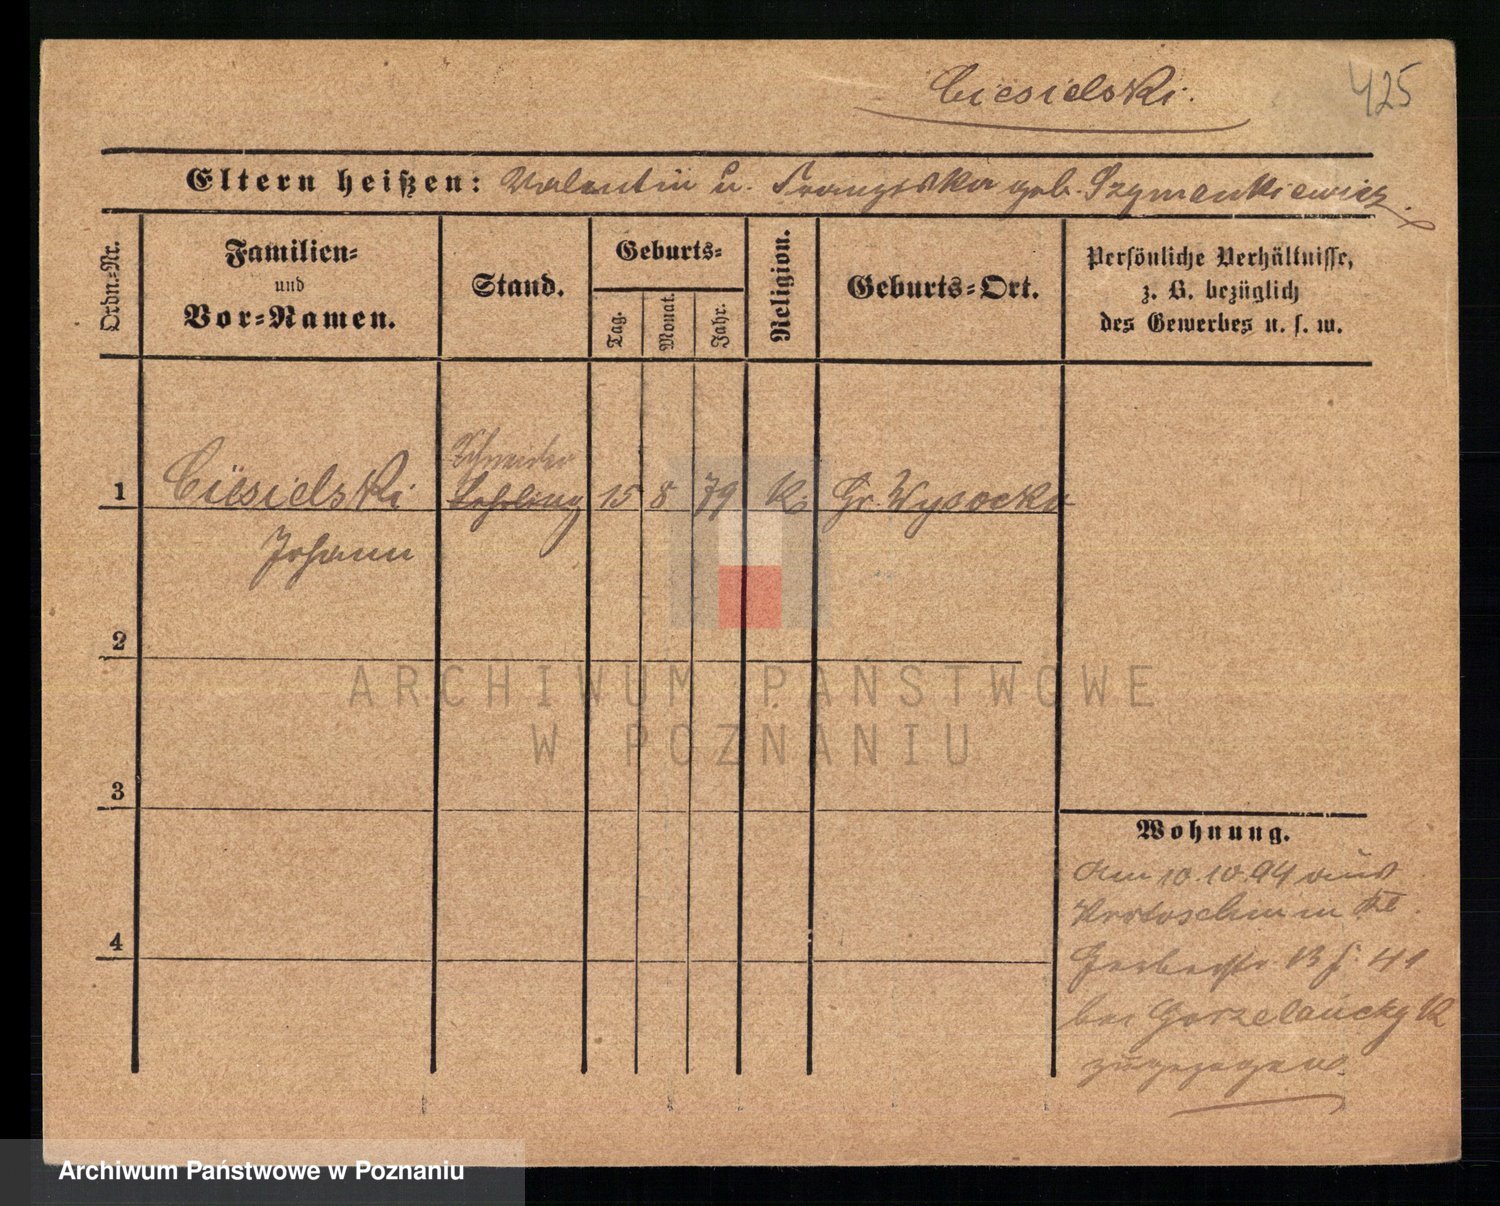 Ciesielski.
425
Eltern heißen: Valentin u. Franziska geb. Szymankiewicz.
Ordn.=Nr.
Familien=
und
Vor=Namen.
Stand.
Geburts=
Tag.
Monat.
Jahr.
Religion.
Geburts=Ort.
Persönliche Verhältnisse,
z. B. bezüglich
des Gewerbes u. s. w.
Schneider
1 Ciesielski Lehrling 15 8 79 K. Gr. Wysocko
Johann
2
3
4
Wohnung.
Am 10.10.94 aus
Krotoschin in
Gerberstr. 13 f. 41
bei Gorzelanczyk
zugezogen.
ARCHIWUM PAŃSTWOWE
W POZNANIU
Archiwum Państwowe w Poznaniu